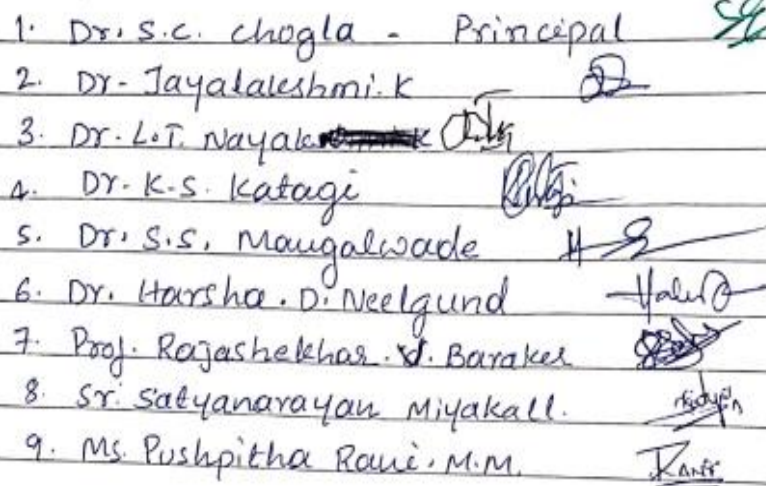 1. Dr. S.C. Chogla - Principal
2. Dr- Jayalakshmi.K
3. Dr. L.T. Nayak
4. Dr. K.S. Katagi
5. Dr. S.S. Mangalwade
6. Dr. Harsha. D. Neelgund
7. Prof. Rajashekhar. V. Baraker
8. Sr. Satyanarayan Miyakall.
9. Ms. Pushpitha Rani. M.M.